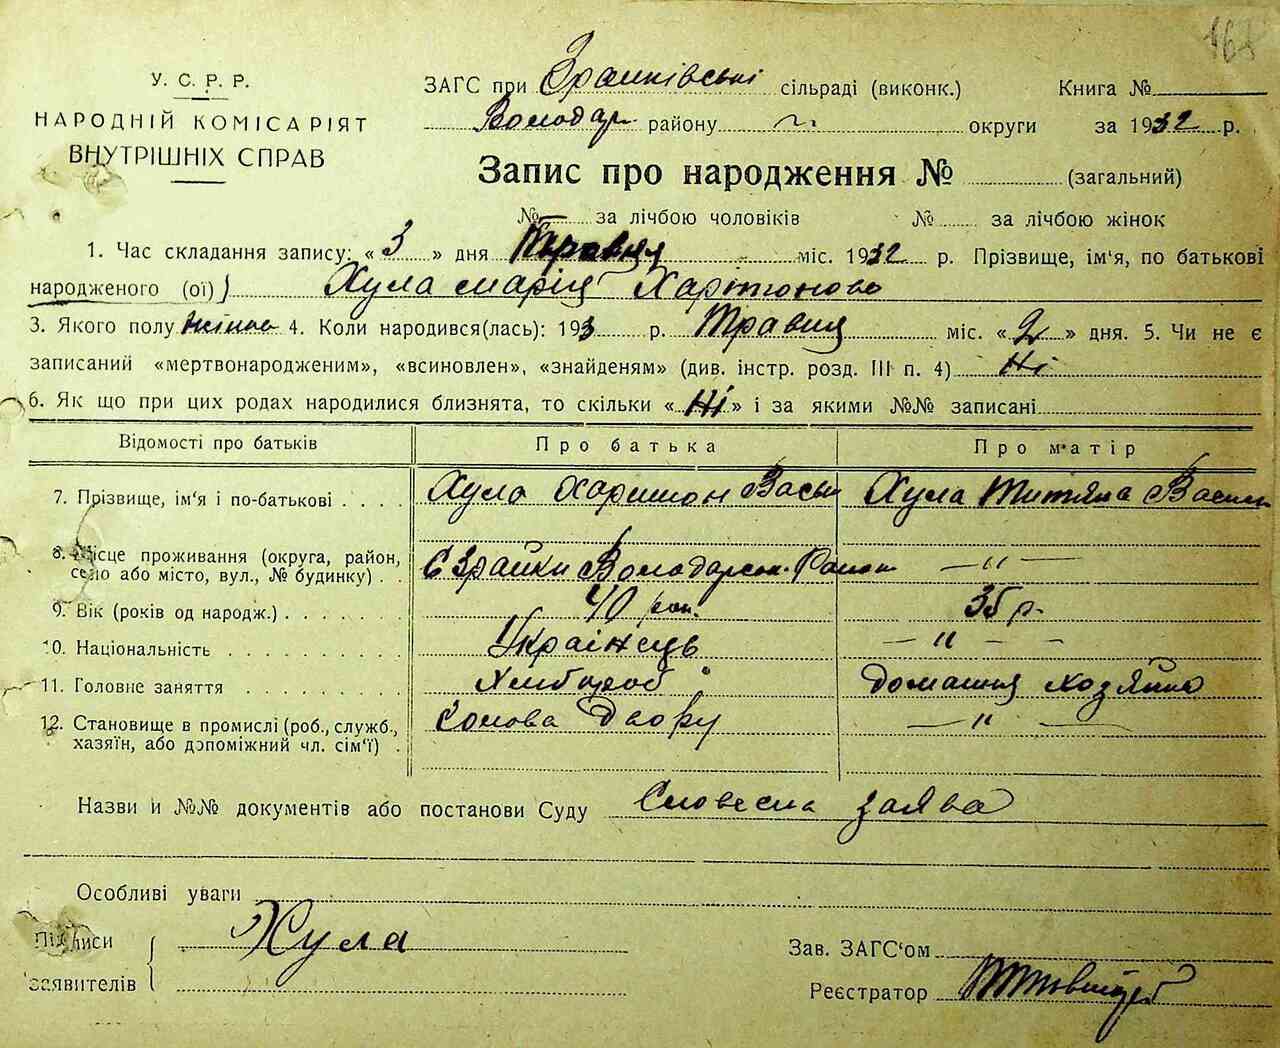 168
У. С. Р. Р.
НАРОДНІЙ КОМІСАРІЯТ
ВНУТРІШНІХ СПРАВ
ЗАГС при Зрайківські сільраді (виконк.) Книга №
Володар. району — „ — округи за 1932 р.
Запис про народження № (загальний)
№ за лічбою чоловіків № за лічбою жінок
1. Час складання запису: « 3 » дня Травня міс. 1932 р. Прізвище, ім'я, по батькові
народженого (ої) Хула Марія Харітонова
3. Якого полу жіноч 4. Коли народився(лась): 193 р. Травня міс. « 2 » дня. 5. Чи не є
записаний «мертвонародженим», «всиновлен», «знайденям» (див. інстр. розд. III п. 4) Ні
6. Як що при цих родах народилися близнята, то скільки « Ні » і за якими №№ записані
Відомості про батьків Про батька Про матір
7. Прізвище, ім'я і по-батькові . . . . Хула Харитон Васи Хула Титяна Васил
8. Місце проживання (округа, район,
село або місто, вул., № будинку) . . С Зрайки Володарськ. Район — „ —
9. Вік (років од народж.) . . . . . . . 40 рок. 35 р.
10. Національність . . . . . . . . . . Українець — „ — —
11. Головне заняття . . . . . . . . . Хлібороб Домашня хозяйка
12. Становище в промислі (роб., служб.,
хазяїн, або допоміжний чл. сім'ї) . Голова двору — „ —
Назви и №№ документів або постанови Суду Словесна заява
Особливі уваги
Підписи
заявителів
Хула
Зав. ЗАГС'ом
Реєстратор